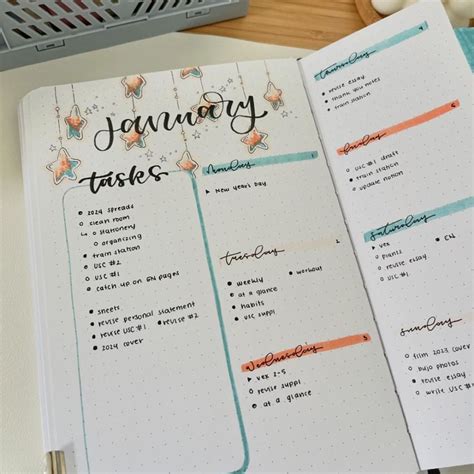 january
tasks
2024 spreads
clean room
stationery
organizing
train station
USC #2
USC #1
catch up on EN pages
sheets
revise personal statement
revise USC #1 revise #2
2024 cover
monday 1
New Year's Day
tuesday 2
weekly workout
at a glance
habits
USC suppl
wednesday 3
vex 2-5
revise suppl
at a glance
thursday 4
revise essay
thank you notes
train station
friday 5
USC #1 draft
train station
update notion
saturday
vex EN
plants
revise essay
USC #2
sunday
film 2023 cover
bujo photos
revise essay
write USC #1